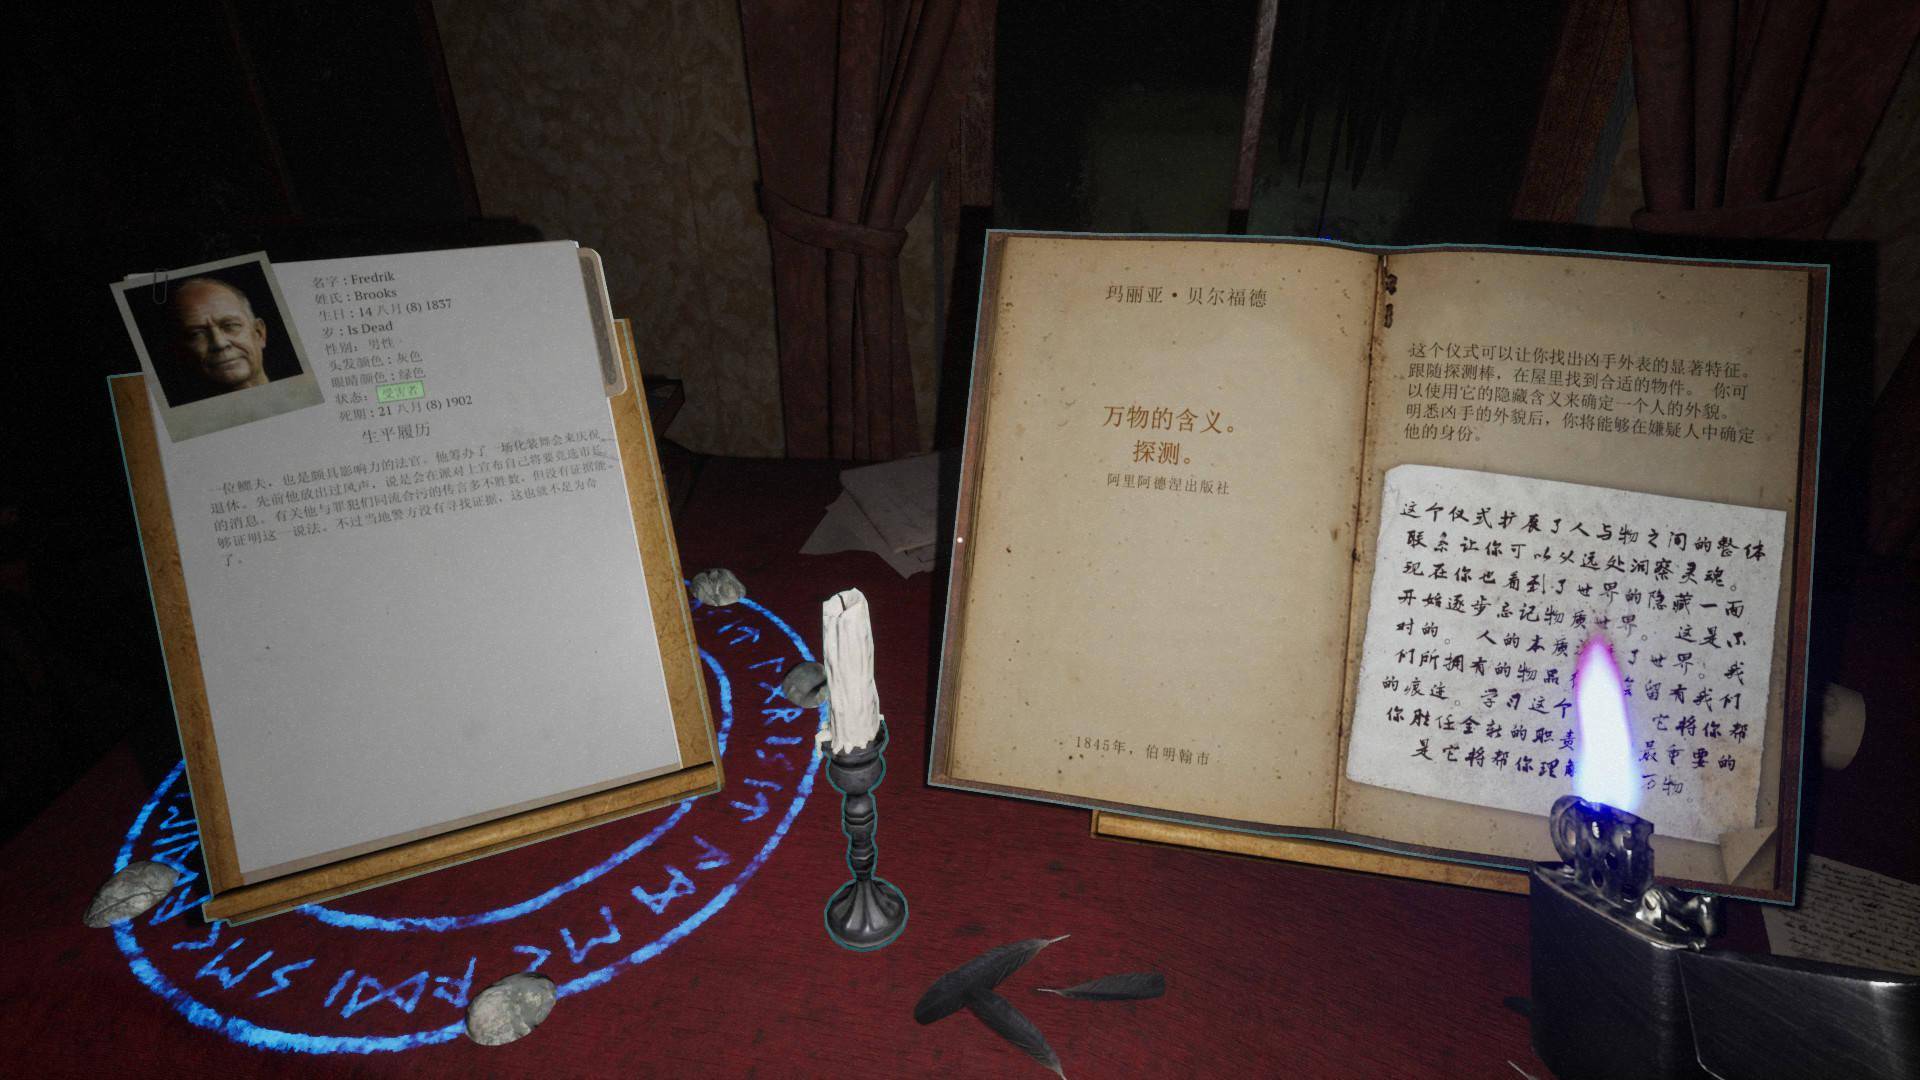 名字：Fredrik
姓氏：Brooks
生日：14 八月 (8) 1837
岁：Is Dead
性别：男性
头发颜色：灰色
眼睛颜色：绿色
状态：受害者
死期：21 八月 (8) 1902
生平履历
一位鳏夫，也是颇具影响力的法官。他筹办了一场化装舞会来庆祝
退休。先前他放出过风声，说是会在派对上宣布自己将要竞选市长
的消息。有关他与罪犯们同流合污的传言多不胜数，但没有证据能
够证明这一说法。不过当地警方没有寻找证据，这也就不足为奇
了。
玛丽亚·贝尔福德
万物的含义。
探测。
阿里阿德涅出版社
1845年，伯明翰市
这个仪式可以让你找出凶手外表的显著特征。
跟随探测棒，在屋里找到合适的物件。 你可
以使用它的隐藏含义来确定一个人的外貌。
明悉凶手的外貌后，你将能够在嫌疑人中确定
他的身份。
这个仪式扩展了人与物之间的整体
联系让你可以从远处洞察灵魂。
现在你也看到了世界的隐藏一面
开始逐步忘记物质世界。 这是不
对的。 人的本质 了世界；我
们所拥有的物品 留有我们
的痕迹。学习这个 它将你帮
你胜任全新的职责 最重要的
是它将帮你理解 万物。